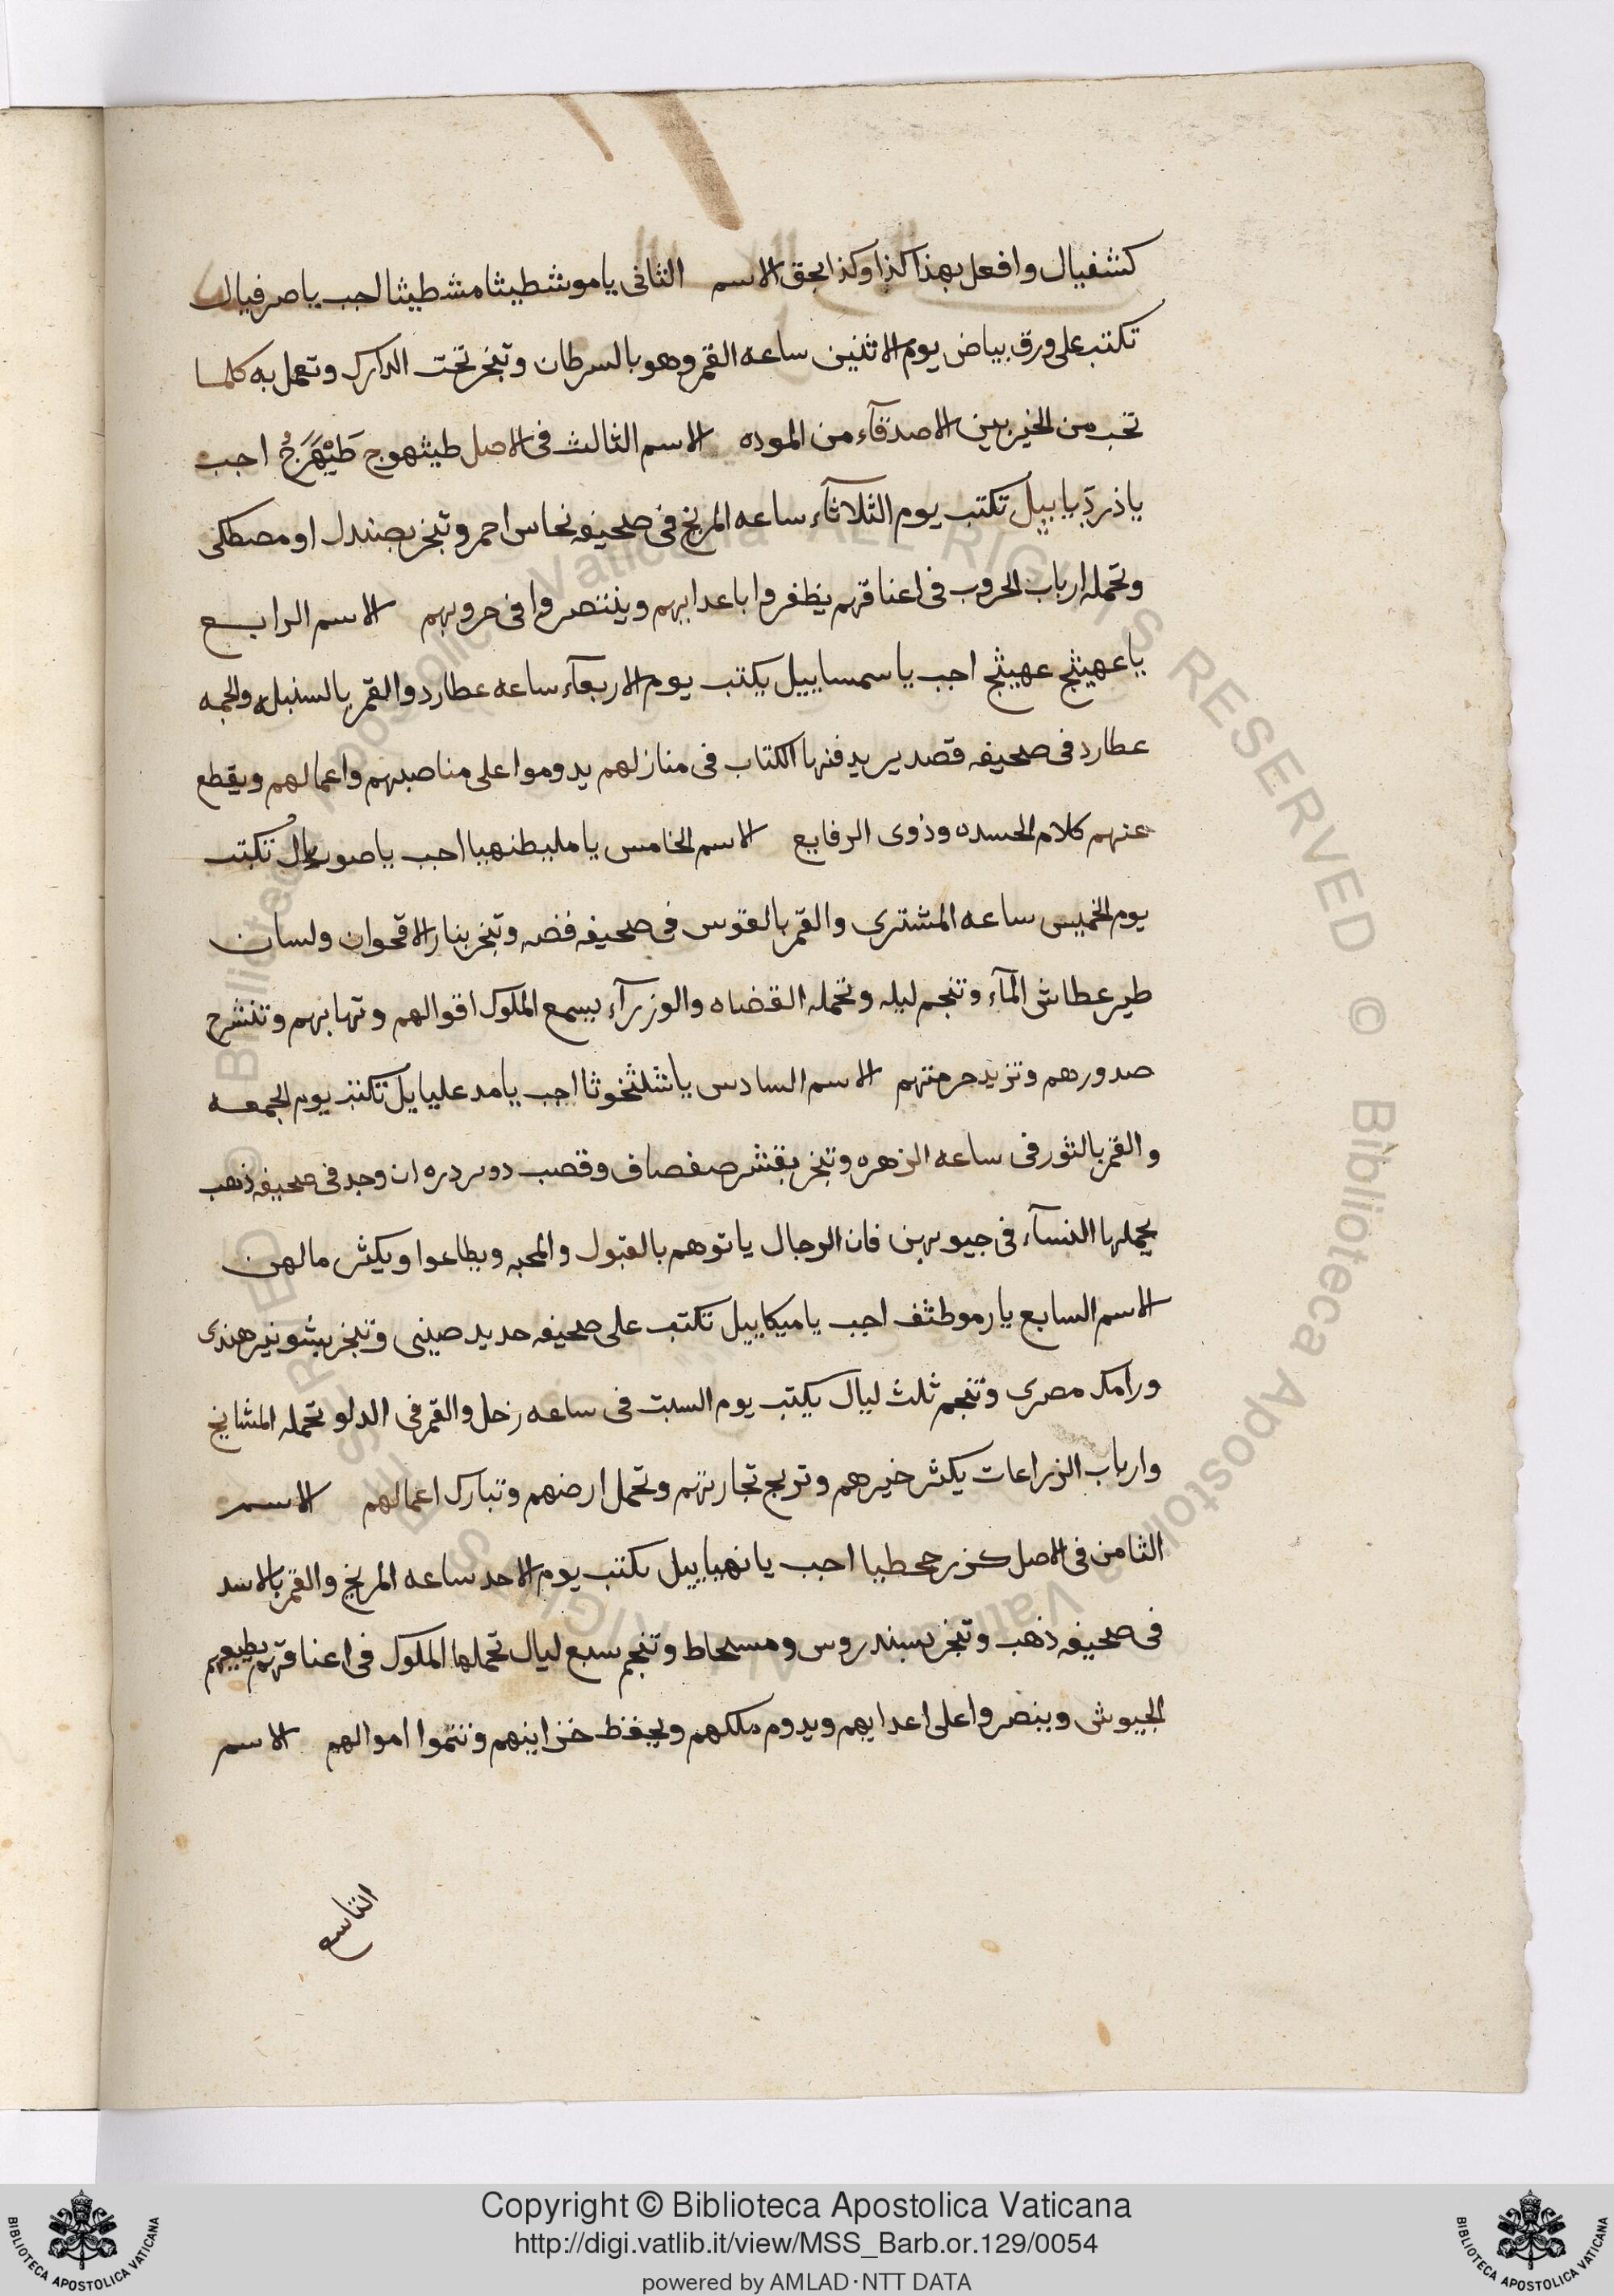 كشفيال وافعل بهذا كذا وكذا بحق الاسم الثانى يا موشطيثا مشطيثا اجب يا صرفيال
تكتب على ورق بياض يوم الاثنين ساعه القمر وهو بالسرطان وتبخر تحت الدارك وتعمل به كلما
تحب من الخير بين الاصدقآء من الموده الاسم الثالث فى الاصل طيثهوج طَيْهَرَجُ اجب
يا ذرديابيل تكتب يوم الثلاثآء ساعه المريخ فى صحيفه نحاس احمر وتبخر بصندل او مصطكى
وتحمله ارباب الحروب فى اعناقهم يظفروا باعدايهم وينتصروا فى حروبهم الاسم الرابع
يا عهيثج عهيثج اجب يا سمساييل يكتب يوم الاربعآء ساعه عطارد والقمر بالسنبله
عطارد فى صحيفه قصدير يدفنها الكتاب فى منازلهم يدوموا على مناصبهم واعمالهم ويقطع
عنهم كلام الحسده وذوى الرفايع الاسم الخامس يا مليطنهيا اجب تكتب
يوم الخميس ساعه المشترى والقمر بالقوس فى صحيفه فضه وتبخر بنار الاقحوان ولسان
طير عطاش المآء وتنجم ليله وتحمله القضاه والوزرآء يسمع الملوك اقوالهم وتهابهم وتنشرح
صدورهم وتزيد حرمتهم الاسم السادس يا شلثخوثا اجب يا مدعليايل تكتب يوم الجمعه
والقمر بالثور فى ساعه الزهره وتبخر بقشر صفصاف وقصب ان وجد فى صحيفه ذهب
يحملها النسآء فى جيوبهن فان الرجال ياتوهم بالقبول والمحبه ويطاعوا ويكثر مالهن
الاسم السابع يا رموطثف اجب يا ميكاييل تكتب على صحيفه حديد صينى وتبخر بشونيز هندى
ورامك مصرى وتنجم ثلث ليال يكتب يوم السبت فى ساعه زحل والقمر فى الدلو تحمله المشايخ
وارباب الزراعات يكثر خيرهم وتربح تجارتهم وتحمل ارضهم وتبارك اعمالهم الاسم
الثامن فى الاصل اجب يا نهياييل يكتب يوم الاحد ساعه المريخ والقمر بالاسد
فى صحيفه ذهب وتبخر بسندروس وتنجم سبع ليال تحملها الملوك فى اعناقهم يطيعهم
الجيوش وينصروا على اعدايهم ويدوم ملكهم ويحفظ خزاينهم وتنموا اموالهم الاسم
التاسع
Copyright © Biblioteca Apostolica Vaticana
http://digi.vatlib.it/view/MSS_Barb.or.129/0054
powered by AMLAD · NTT DATA
BIBLIOTECA APOSTOLICA VATICANA
BIBLIOTECA APOSTOLICA VATICANA
© Biblioteca Apostolica Vaticana ALL RIGHTS RESERVED
© Biblioteca Apostolica Vaticana ALL RIGHTS RESERVED